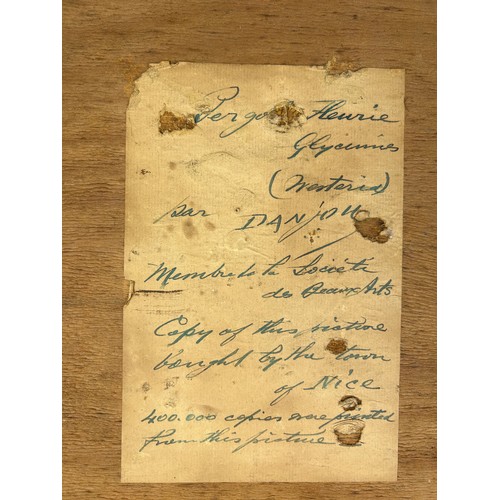 Pergola Fleurie
Glycinnes
(Westeria)
par DANJOU
Membre de la Société
des Beaux Arts
Copy of this picture
bought by the town
of NICE
400.000 copies were printed
from this picture